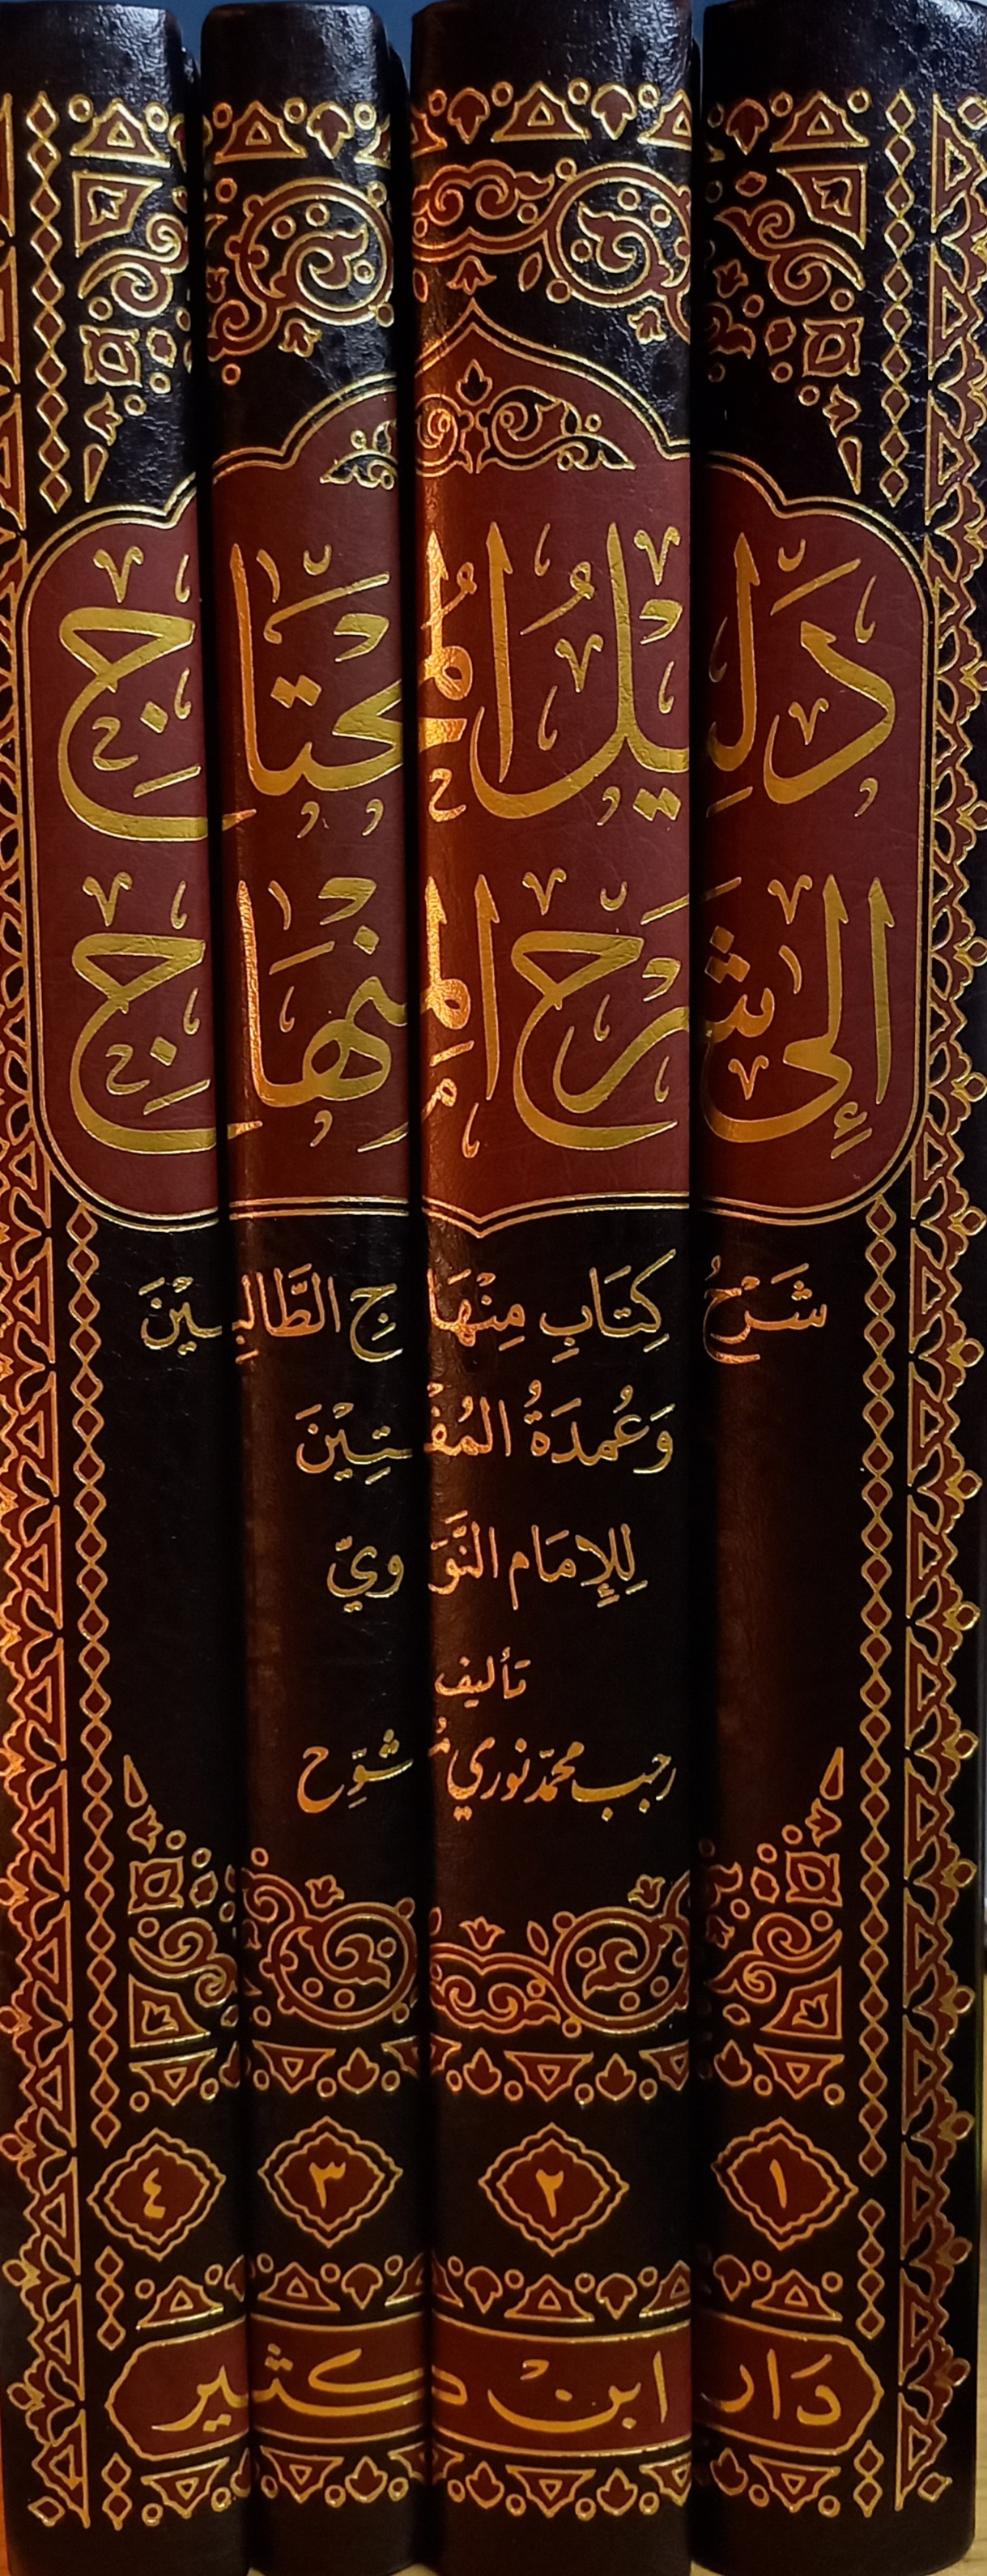 دَلِيْلُ الْمُحْتَاجِ
إِلَى شَرْحِ الْمِنْهَاجِ
شَرْحُ كِتَابِ مِنْهَاجِ الطَّالِبِيْنَ
وَعُمدَةُ المُفْتِيْنَ
لِلإِمَام النَّوَويّ
تأليف
رجب محمّد نوري مُشوِّح
١ ٢ ٣ ٤
دَار ابنْ كثير